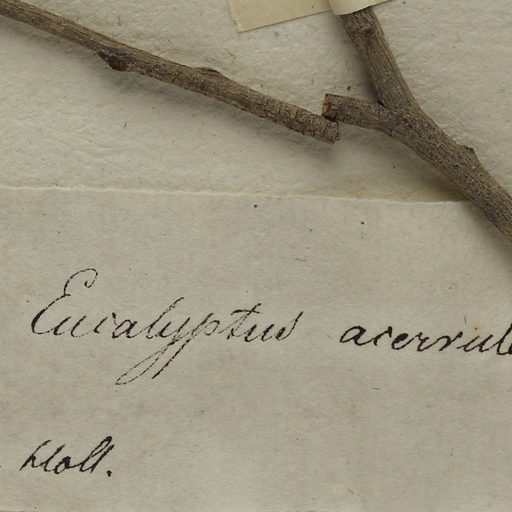 Eucalyptus acervul
Holl.